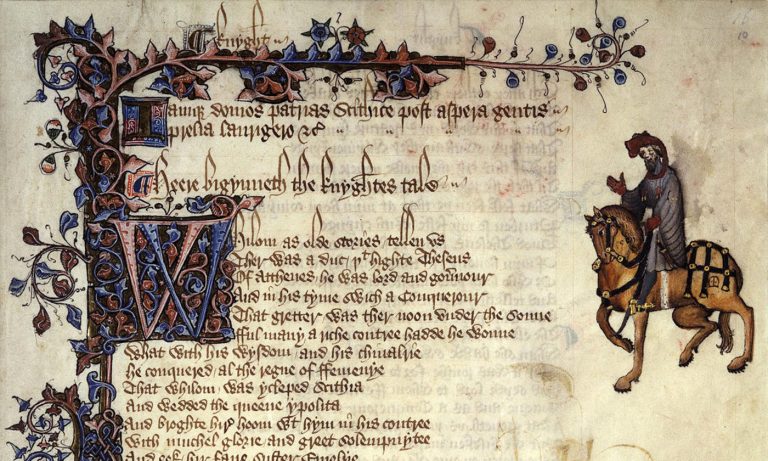 ¶ Knyght
10
Iamq domos patrias Scithice post aspera gentis
prelia laurigero &c
¶ Heere bigynneth the knyghtes tale
Whilom as olde stories tellen vs
Ther was a duc þt highte Theseus
Of Atthenes he was lord and gouernour
And in his tyme swich a Conquerour
That gretter was ther noon vnder the sonne
fful many a riche contree hadde he wonne
What with his wysdom and his chiualrie
he conquered al the regne of ffemenye
That whilom was ycleped Scithia
And wedded the queene ypolita
And broghte hir hoom wt hym in his contree
With muchel glorie and greet solempnytee
And eek hir faire suster Emelye